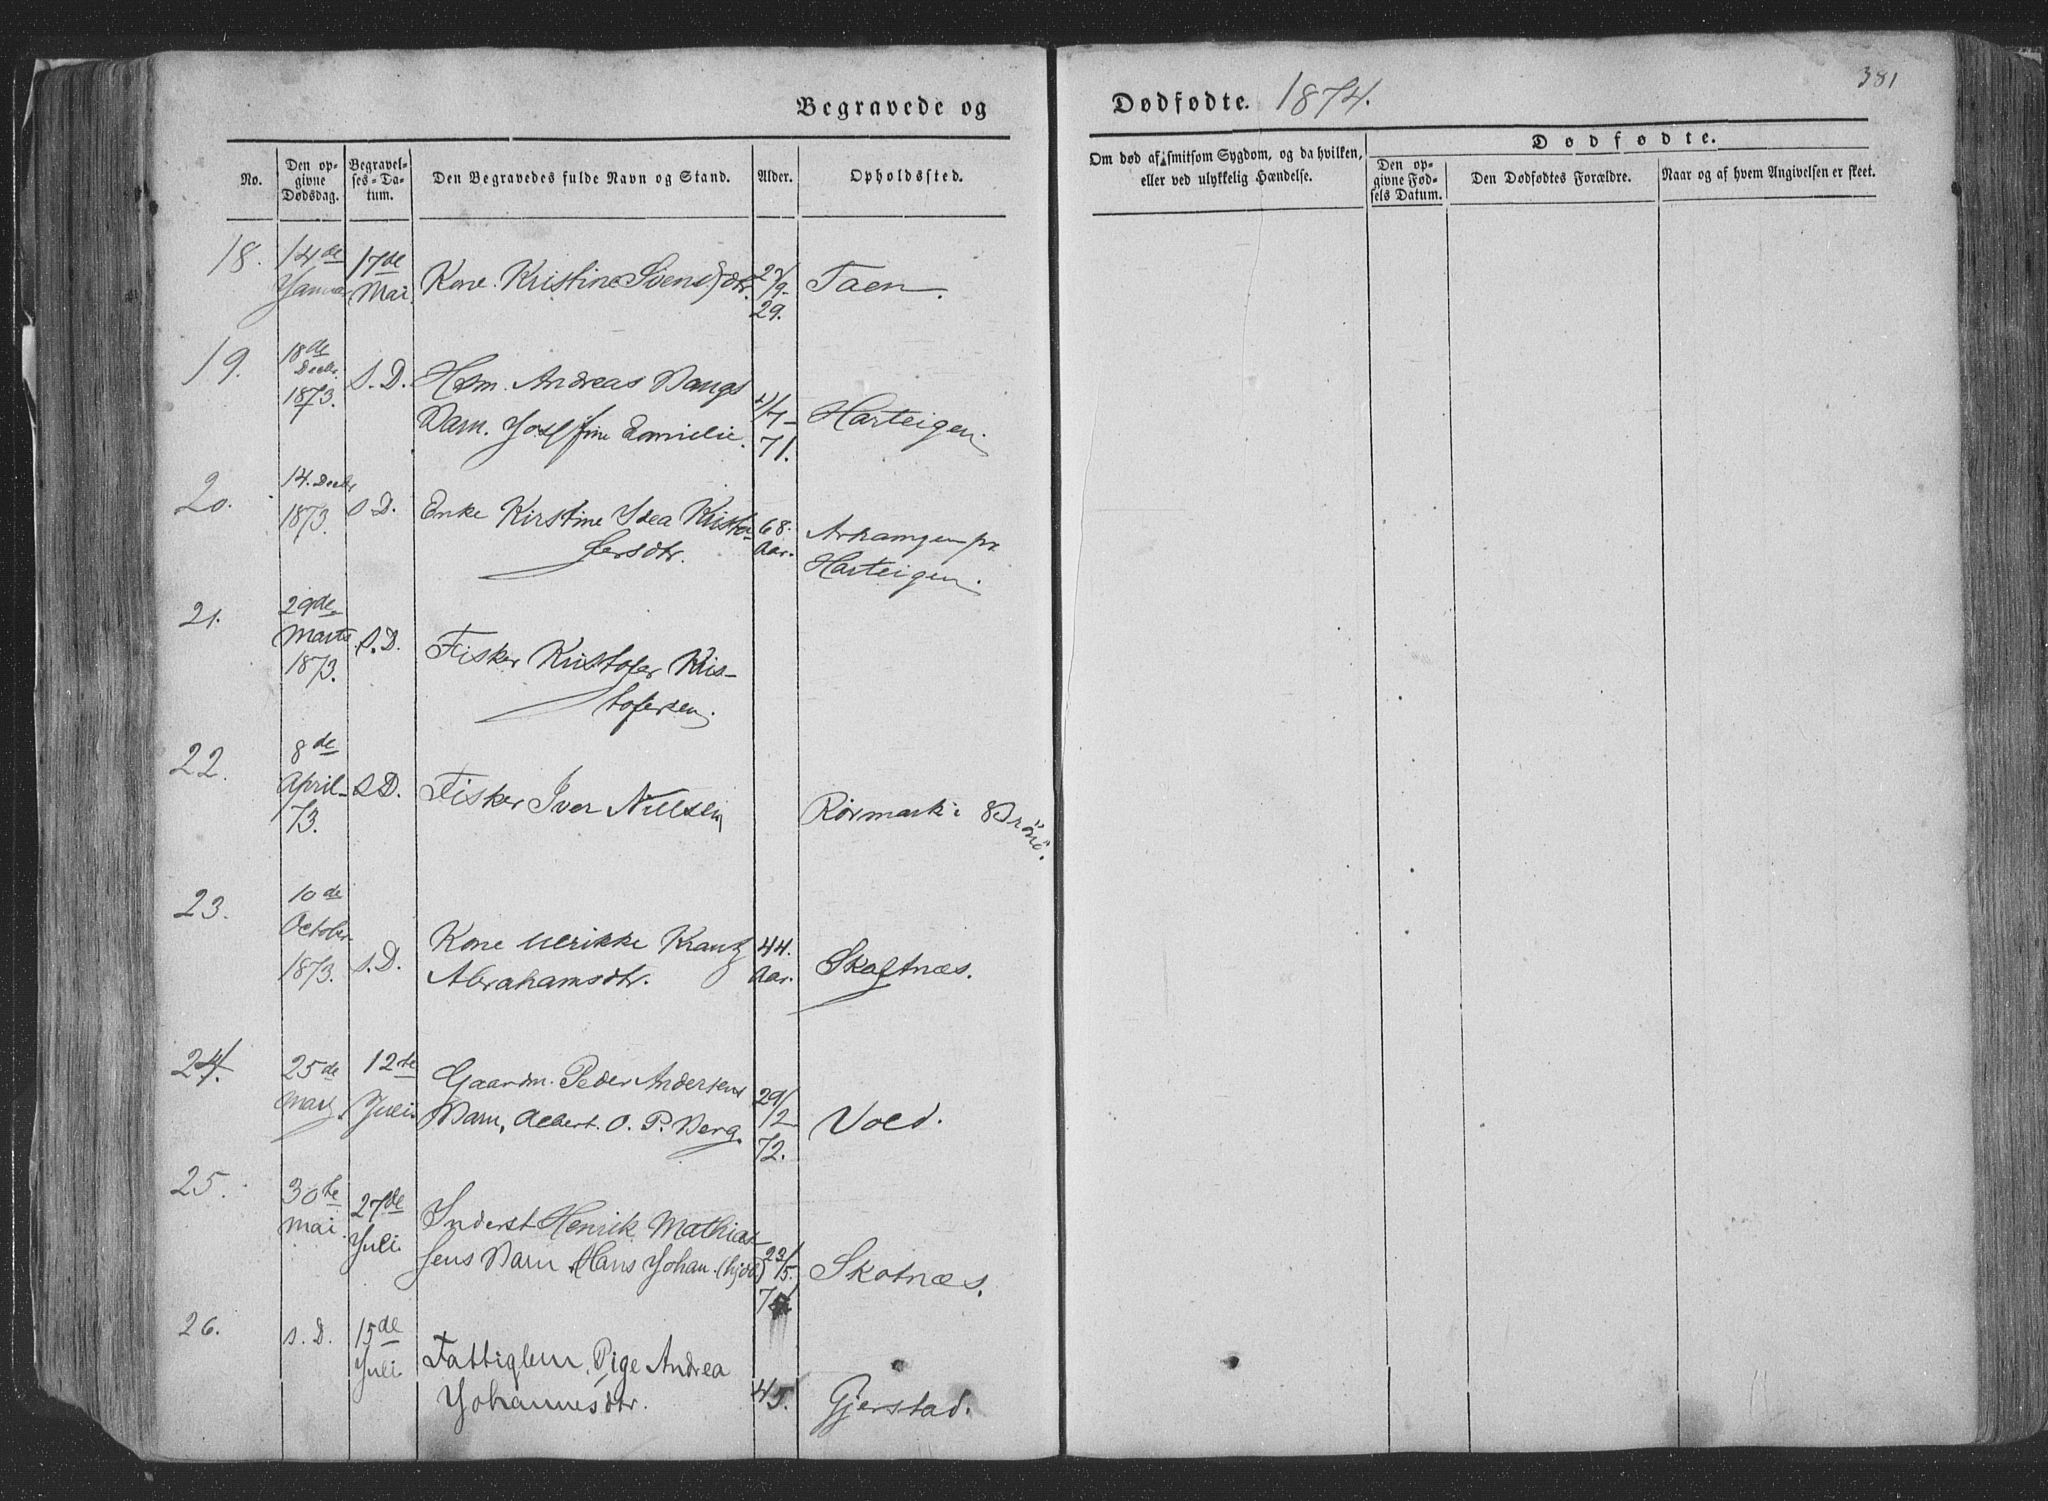 Begravede og
Dødfødte. 1874.
381
No.
Den opgivne Dødsdag.
Begravelses-Datum.
Den Begravedes fulde Navn og Stand.
Alder.
Opholdssted.
Om død af smitsom Sygdom, og da hvilken,
eller ved ulykkelig Hændelse.
Dødfødte.
Den opgivne Fødsels Datum.
Den Dødfødtes Forældre.
Naar og af hvem Angivelsen er skeet.
18. 14de 17de
Mai Kone Kristine Svendsdtr. 27/9 Taen.
29.
19. 18de
Decbr. S. D. Hsm. Andreas Bangs
1873. Barn. Josefine Emilie. 4/7- Harteigen.
71.
20. 14. Decbr
1873. S. D. Enke Kirstine Idea Kristo- 68
fersdtr. Aar. Harteigen.
21. 29de
Marts S. D. Fisker Kristofer Kris-
1873. tofersen.
22. 8de
April S. D. Fisker Iver Nillsen
73. Rörmark i Brönö.
23. 10de
October Kone Ulrikke Krantz 44.
1873. S. D. Abrahamsdtr. Aar. Skaftnæs.
24. 25de 12te Gaardm. Peder Andersens 29/
Juli Barn, Albert O. P. Berg. 12 Vold.
72.
25. 30te 27de Inderst Henrik Mathias-
Mai. Juli. sens Barn Hans Johan. 23/ Skotnæs.
26. s. D. 15de
Juli Fattiglem, Pige Andrea 45. Gjerstad.
Johannesdtr.